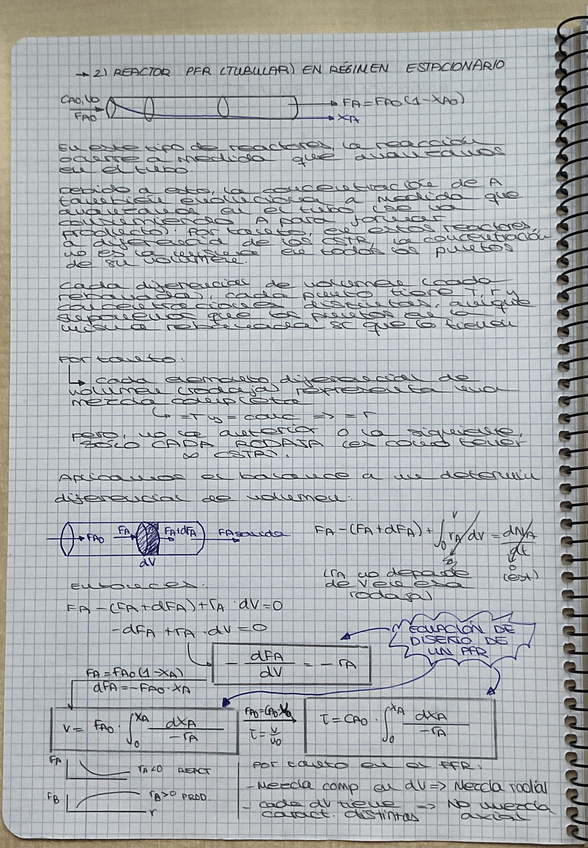 → 2) REACTOR PFR (TUBULAR) EN RÉGIMEN ESTACIONARIO
CA0, V0
FA0
FA = FA0 (1 - XA0)
XA
En este tipo de reactores, la reacción
ocurre a medida que avanzamos
en el tubo.
Debido a esto, la concentración de A
también evoluciona a medida que
avanzamos en el tubo (se va
consumiendo A para formar
producto). Por tanto, en estos reactores,
a diferencia de los CSTR, la concentración
no es la misma en todos los puntos
de su volumen.
Cada diferencial de volumen (cada
rebanada), cada punto tiene T, r y
concentraciones distintas aunque
suponemos que los puntos en la
misma rebanada sí que lo tienen
Por tanto:
↳ cada elemento diferencial de
volumen (rodaja) representa una
mezcla completa
↳ = T y = conc => = r
pero, no la anterior o la siguiente,
SOLO CADA RODAJA (es como tener
∞ CSTR).
Aplicamos el balance a un
diferencial de volumen:
FA0 FA FA+dFA FA salida
dV
FA - (FA + dFA) + ∫₀ⱽ rA dV = dNA/dt
(rA no depende
de V en esa
rodaja)
0
(est)
Entonces:
FA - (FA + dFA) + rA · dV = 0
- dFA + rA · dV = 0
- dFA/dV = - rA
ECUACIÓN DE
DISEÑO DE
UN PFR
FA = FA0 (1 - XA)
dFA = - FA0 · XA
V = FA0 · ∫₀^XA dXA/-rA
τ = V/V0
τ = CA0 · ∫₀^XA dXA/-rA
FA
rA<0 REACT
FB
rB>0 PROD.
Por tanto en el PFR:
- Mezcla comp en dV => Mezcla radial
- cada dV tiene => No mezcla
caract. distintas axial